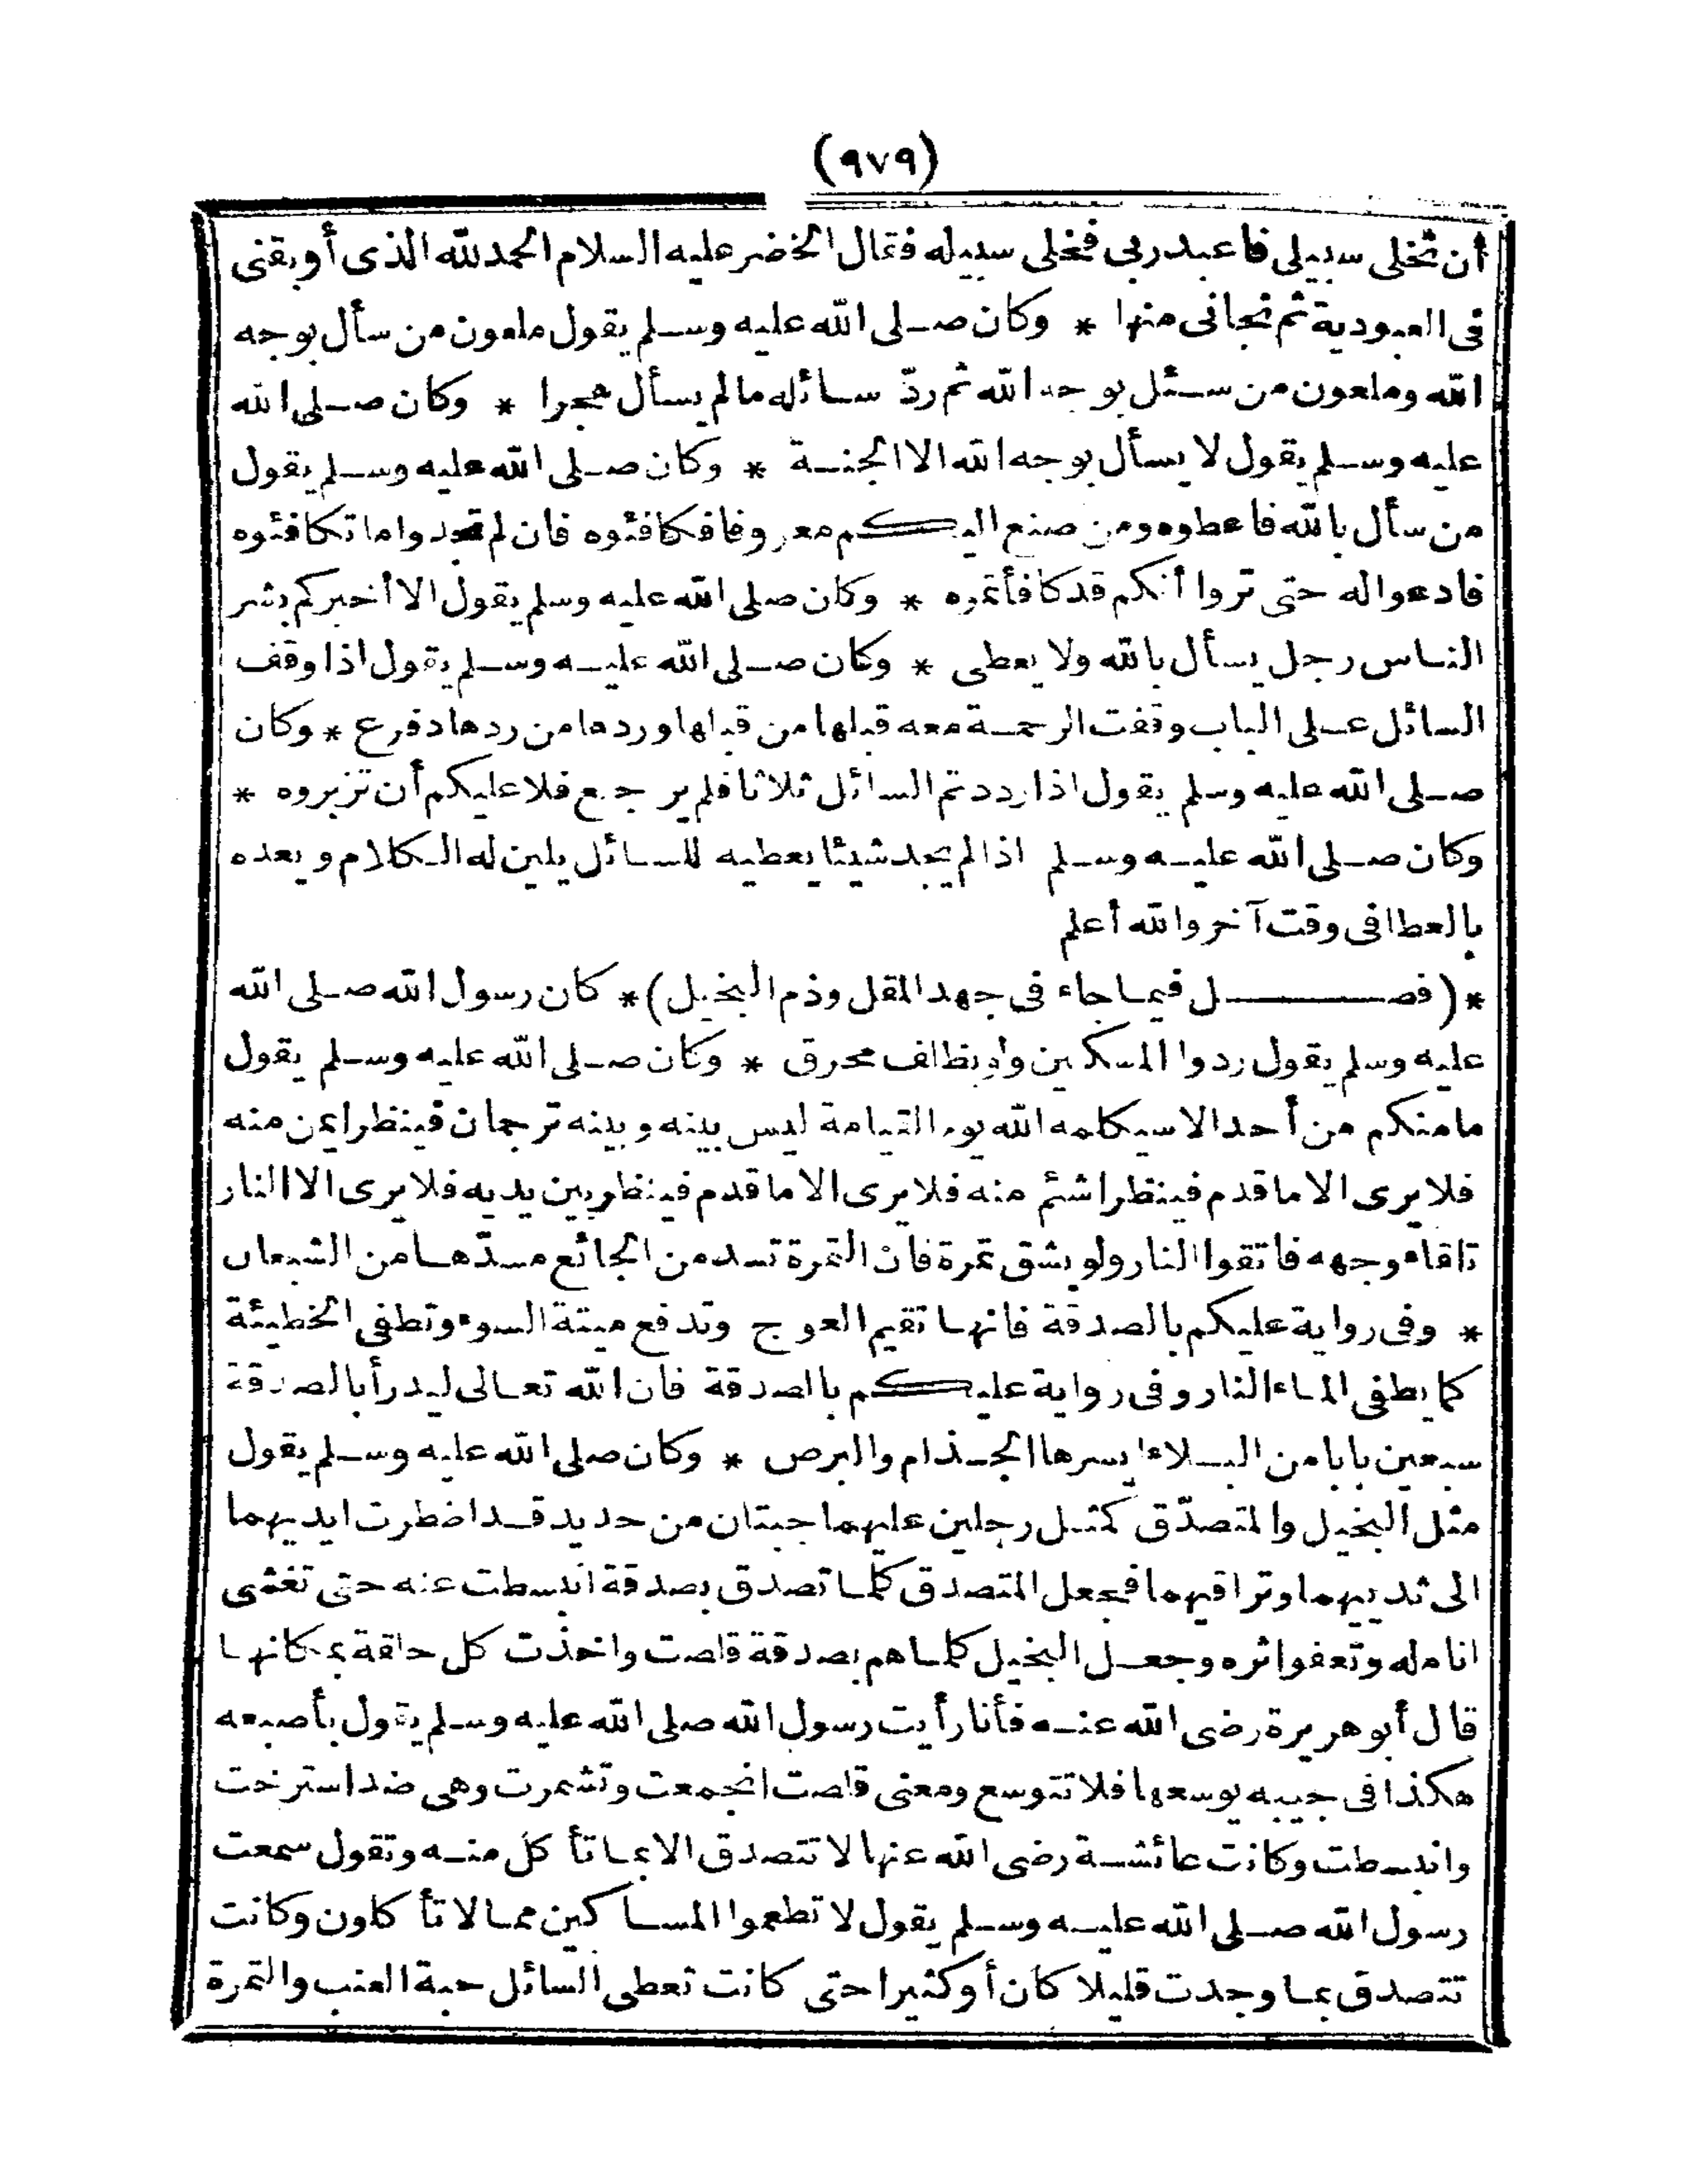 (٩٧٩)
أن تخلى سبيلى فاعبد ربى فخلى سبيله فقال الخضر عليه السلام الحمد لله الذى أوبقنى
فى العبودية ثم نجانى منها * وكان صلى الله عليه وسلم يقول ملعون من سأل بوجه
الله وملعون من سئل بوجه الله ثم ردّ سائله مالم يسأل هجرا * وكان صلى الله
عليه وسلم يقول لا يسأل بوجه الله الا الجنة * وكان صلى الله عليه وسلم يقول
من سأل بالله فاعطوه ومن صنع اليكم معروفا فكافئوه فان لم تجدوا ما تكافئوه
فادعوا له حتى تروا أنكم قد كافأتموه * وكان صلى الله عليه وسلم يقول الا أخبركم بشر
الناس رجل يسأل بالله ولا يعطى * وكان صلى الله عليه وسلم يقول اذا وقف
السائل على الباب وقفت الرحمة معه قبلها من قبلها وردها من ردها دفرع * وكان
صلى الله عليه وسلم يقول اذا رددتم السائل ثلاثا فلم يرجع فلا عليكم أن تزبروه *
وكان صلى الله عليه وسلم اذا لم يجد شيئا يعطيه للسائل يلين له الكلام ويعده
بالعطا فى وقت آخر والله أعلم
* (فصل فيما جاء فى جهد المقل وذم البخيل) * كان رسول الله صلى الله
عليه وسلم يقول ردوا المسكين ولو بظلف محرق * وكان صلى الله عليه وسلم يقول
ما منكم من أحد الا سيكلمه الله يوم القيامة ليس بينه وبينه ترجمان فينظر ايمن منه
فلا يرى الا ما قدم فينظر اشئم منه فلا يرى الا ما قدم فينظر بين يديه فلا يرى الا النار
تلقاء وجهه فاتقوا النار ولو بشق تمرة فان التمرة تسد من الجائع مسدّها من الشبعان
* وفى رواية عليكم بالصدقة فانها تقيم العوج وتدفع ميتة السوء وتطفى الخطيئة
كما يطفى الماء النار وفى رواية عليكم بالصدقة فان الله تعالى ليدرأ بالصدقة
سبعين بابا من البلاء ايسرها الجذام والبرص * وكان صلى الله عليه وسلم يقول
مثل البخيل والمتصدّق كمثل رجلين عليهما جبتان من حديد قد اضطرت ايديهما
الى ثدييهما وتراقيهما فجعل المتصدق كلما تصدق بصدقة انبسطت عنه حتى تغشى
انامله وتعفوا ثره وجعل البخيل كلما هم بصدقة قلصت واخذت كل حلقة بمكانها
قال أبو هريرة رضى الله عنه فأنا رأيت رسول الله صلى الله عليه وسلم يقول بأصبعه
هكذا فى جيبه يوسعها فلا تتوسع ومعنى قلصت انجمعت وتشمرت وهى ضد استرخت
وانبسطت وكانت عائشة رضى الله عنها لا تتصدق الا بما تأكل منه وتقول سمعت
رسول الله صلى الله عليه وسلم يقول لا تطعموا المساكين مما لا تأكلون وكانت
تتصدق بما وجدت قليلا كان أو كثيرا حتى كانت تعطى السائل حبة العنب والتمرة